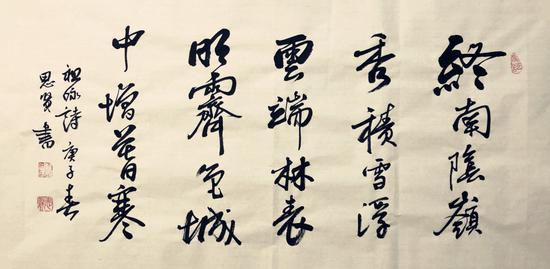 終南陰嶺
秀積雪浮
雲端林表
明霽色城
中增暮寒
祖咏詩 庚子春
思賢書